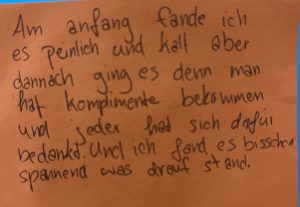 Am anfang fande ich
es peinlich und kalt aber
dannach ging es denn man
hat komplimente bekommen
und jeder hat sich dafür
bedankt. Und ich fand es bisschen
spannend was drauf stand.